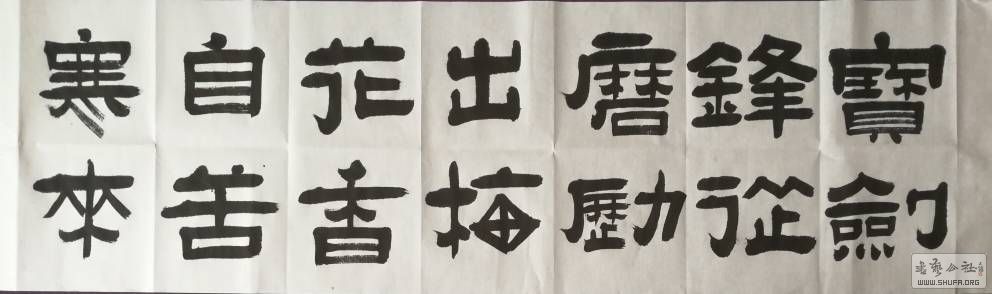 寶劍
鋒從
磨勵
出梅
花香
自苦
寒來
书艺公社
WWW.SHUFA.ORG